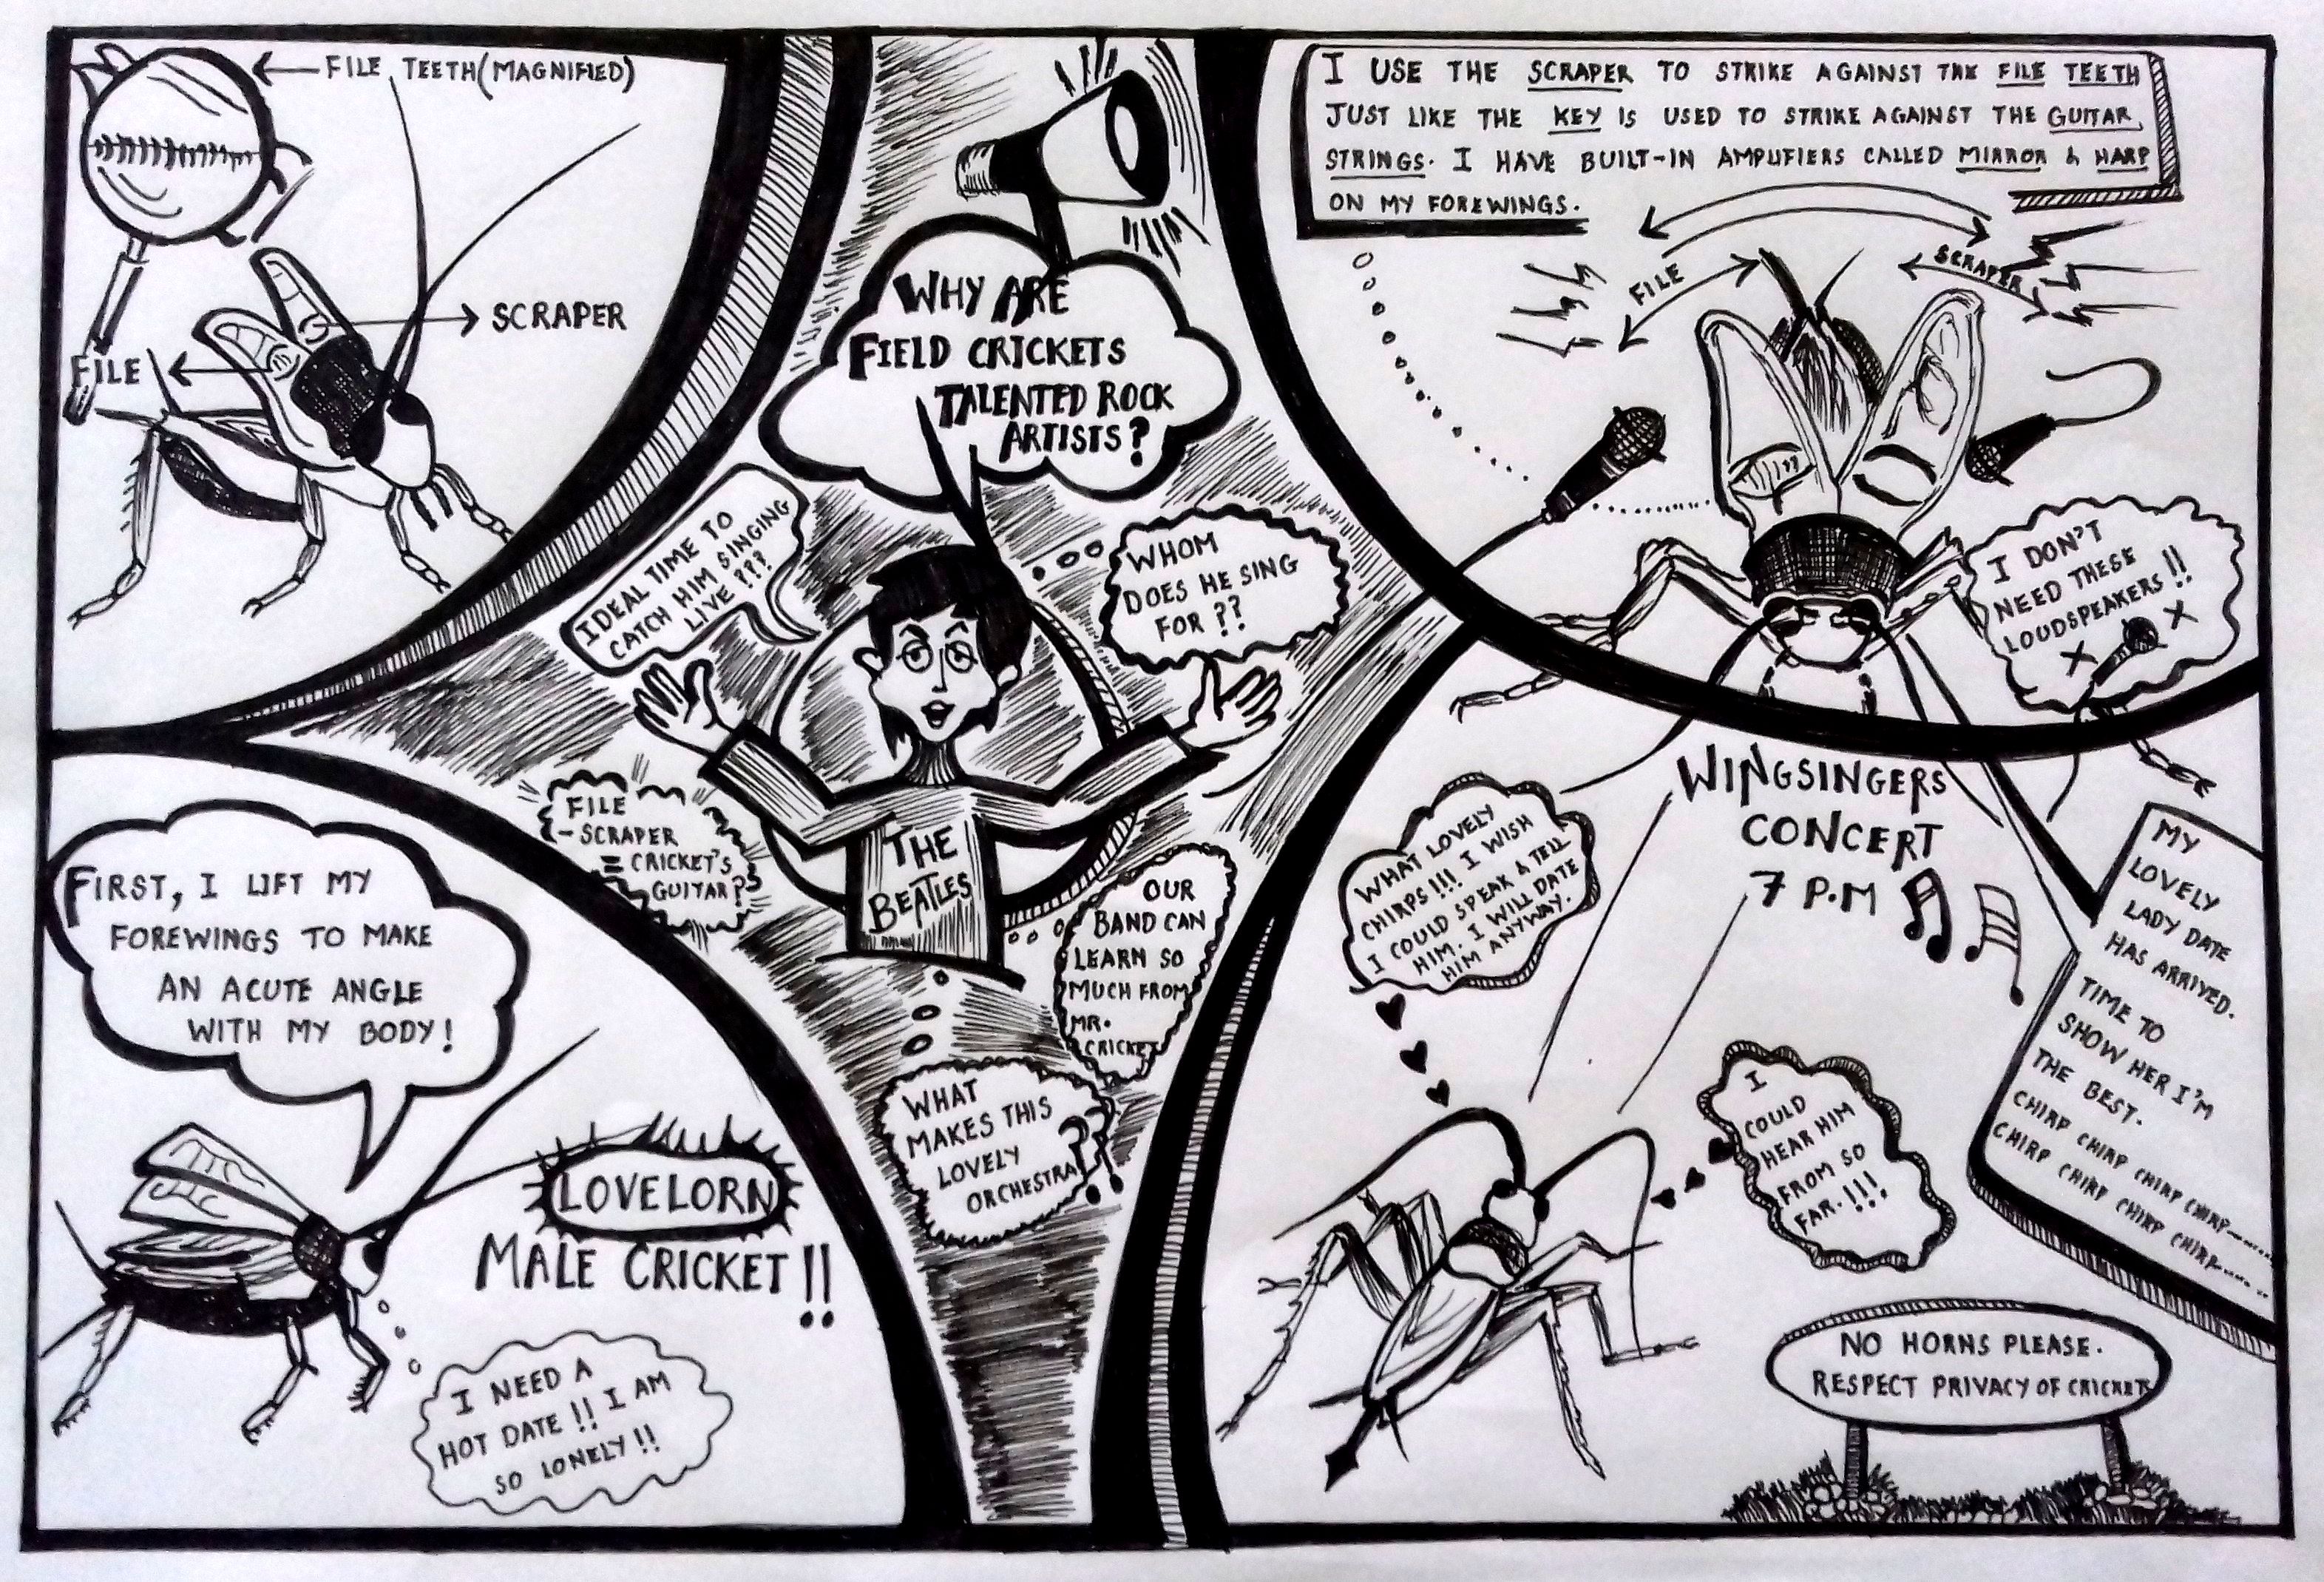 FILE TEETH (MAGNIFIED)
SCRAPER
FILE
WHY ARE
FIELD CRICKETS
TALENTED ROCK
ARTISTS?
IDEAL TIME TO
CATCH HIM SINGING
LIVE???
WHOM
DOES HE SING
FOR ??
FILE
-SCRAPER
= CRICKET'S
GUITAR?
THE
BEATLES
OUR
BAND CAN
LEARN SO
MUCH FROM
MR.
CRICKET
WHAT
MAKES THIS
LOVELY
ORCHESTRA??!
I USE THE SCRAPER TO STRIKE AGAINST THE FILE TEETH
JUST LIKE THE KEY IS USED TO STRIKE AGAINST THE GUITAR
STRINGS. I HAVE BUILT-IN AMPLIFIERS CALLED MIRROR & HARP
ON MY FOREWINGS.
FILE
SCRAPER
I DON'T
NEED THESE
LOUDSPEAKERS!!
FIRST, I LIFT MY
FOREWINGS TO MAKE
AN ACUTE ANGLE
WITH MY BODY!
LOVELORN
MALE CRICKET!!
I NEED A
HOT DATE!! I AM
SO LONELY!!
WINGSINGERS
CONCERT
7 P.M
WHAT LOVELY
CHIRPS!!! I WISH
I COULD SPEAK & TELL
HIM. I WILL DATE
HIM ANYWAY.
I
COULD
HEAR HIM
FROM SO
FAR.!!!
MY
LOVELY
LADY DATE
HAS ARRIVED.
TIME TO
SHOW HER I'M
THE BEST.
CHIRP CHIRP CHIRP CHIRP CHIRP........
CHIRP CHIRP CHIRP CHIRP CHIRP......
NO HORNS PLEASE.
RESPECT PRIVACY OF CRICKET